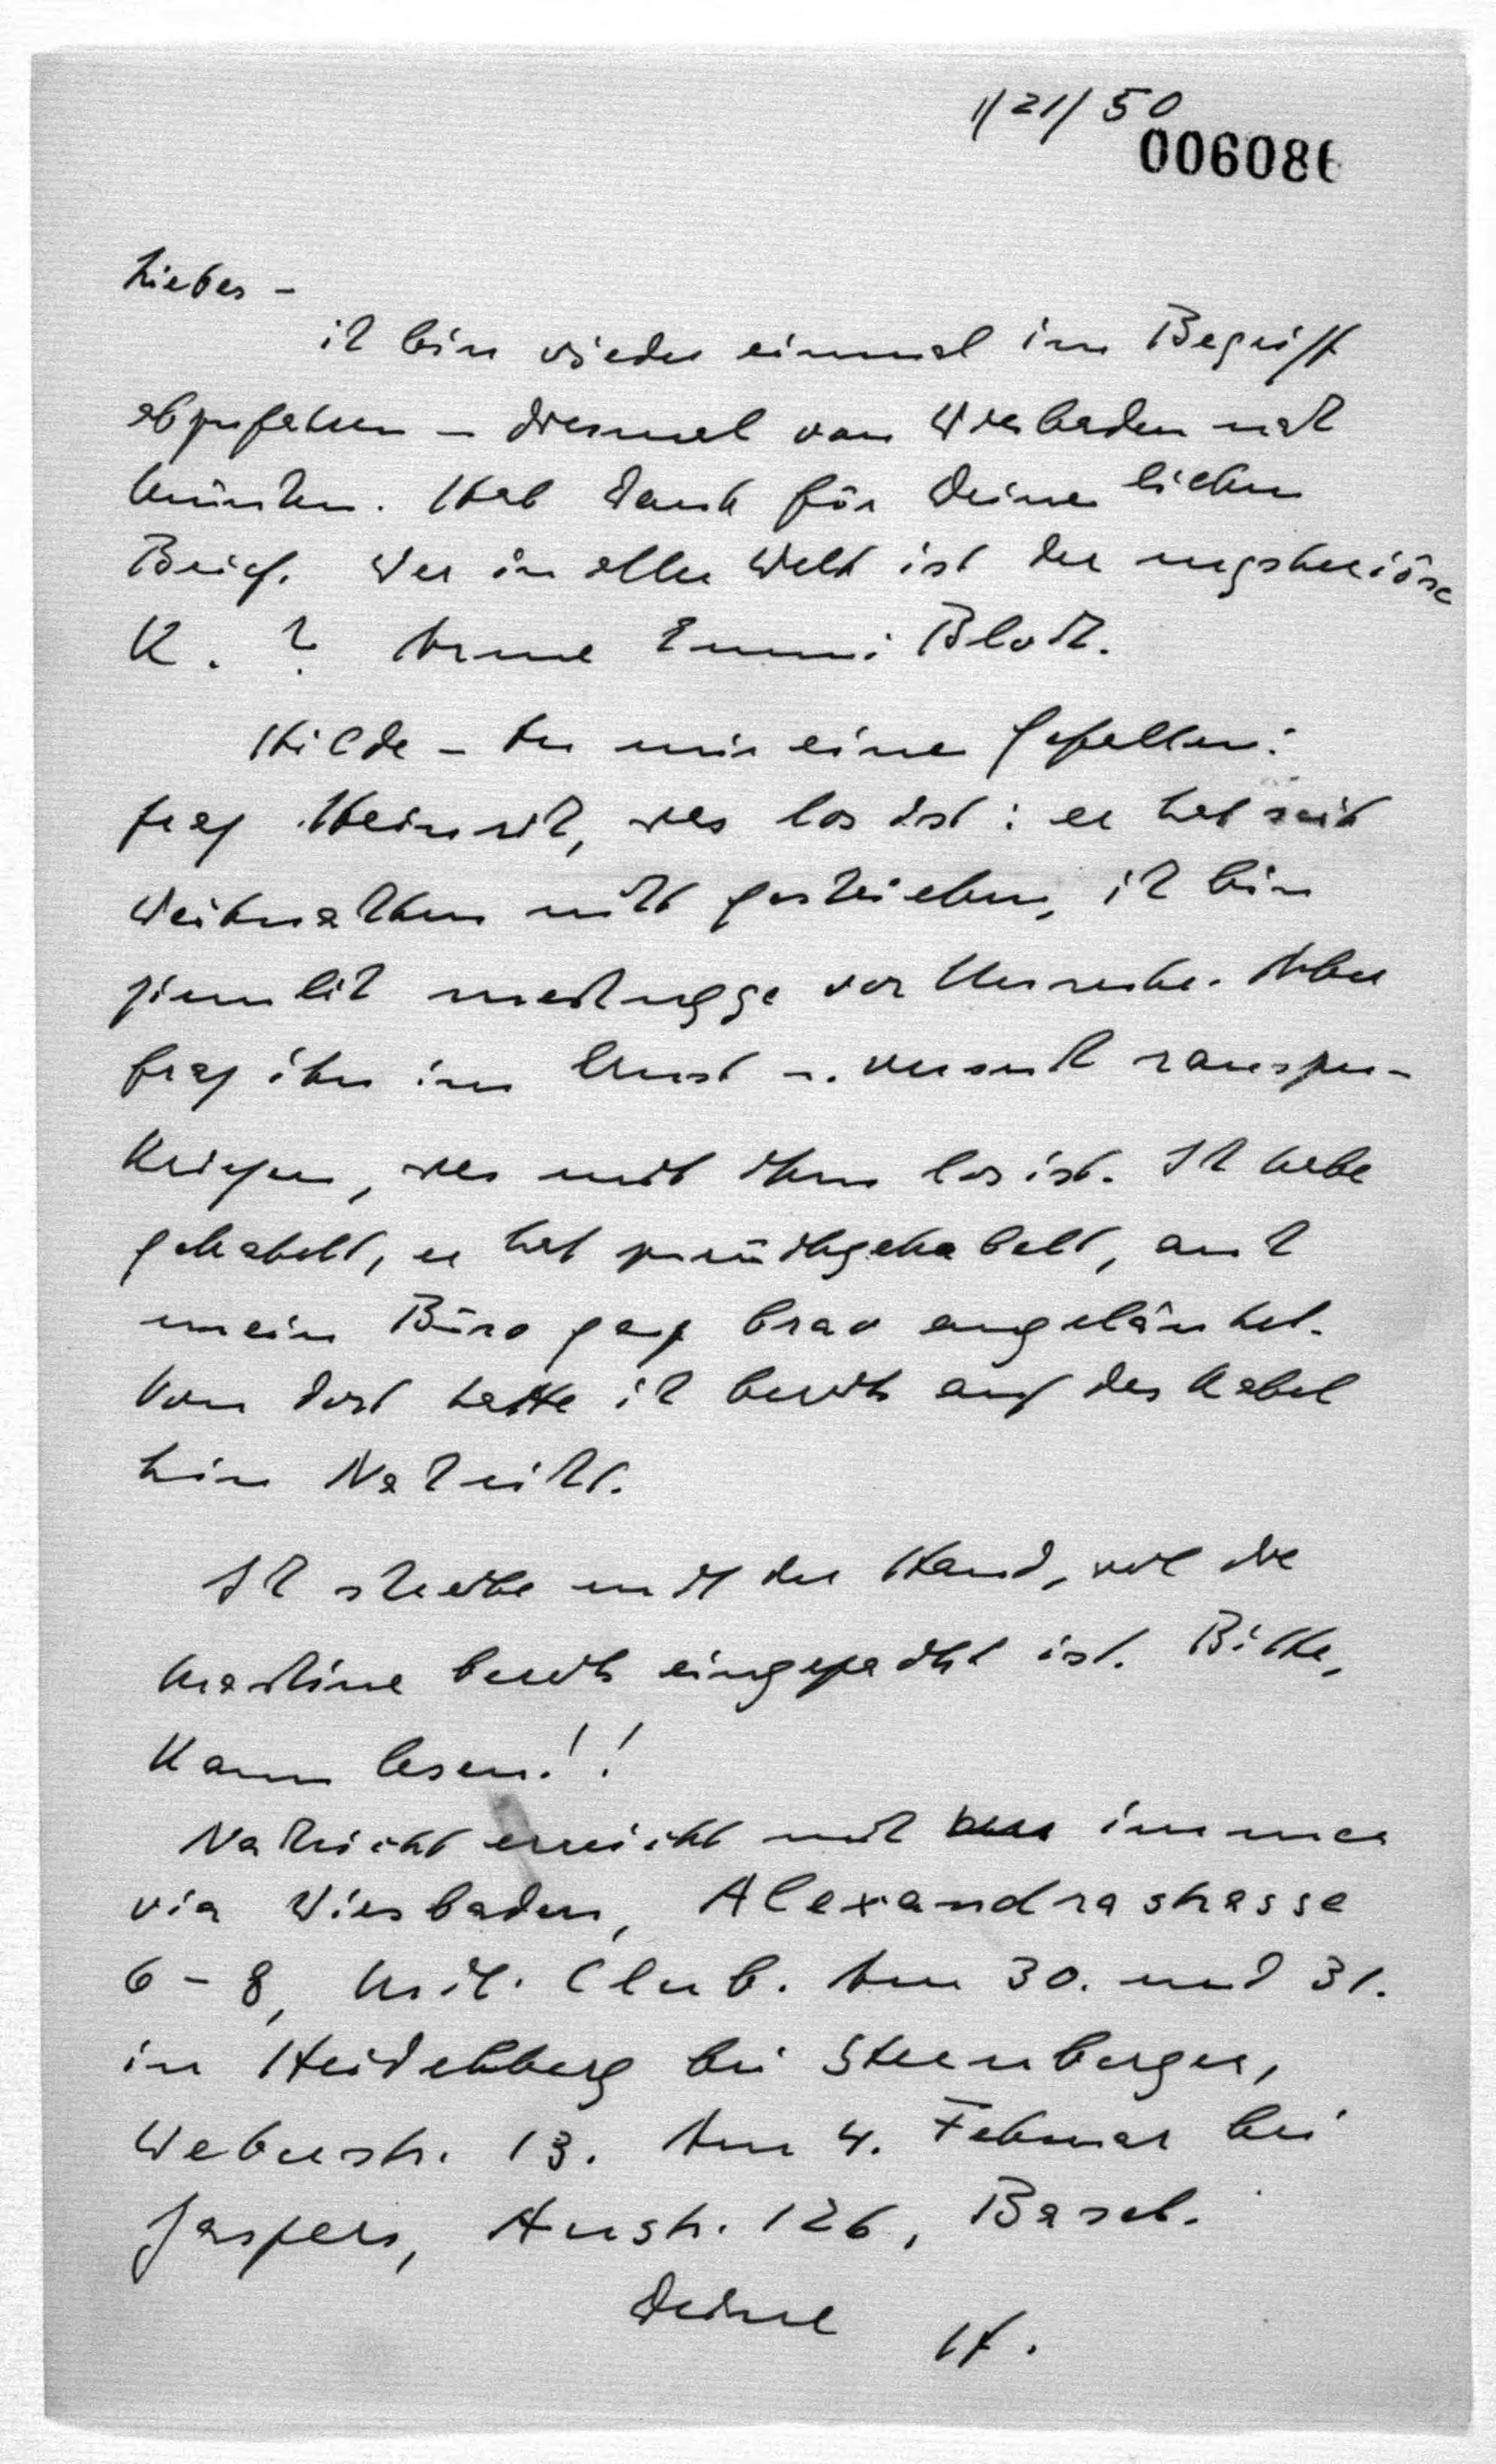 1/21/50
006086
Liebes –
ich bin wieder einmal im Begriff
abzufahren – diesmal von Wiesbaden nach
München. Hab Dank für Deinen lieben
Brief. Wer in aller Welt ist der mysteriöse
K. ? Arme Emmi Bloch.
Hilde – tu mir einen Gefallen:
frag Heinrich, was los ist: er hat seit
Weihnachten nicht geschrieben, ich bin
ziemlich meschugge vor Unruhe. Aber
frag ihn im Ernst u. versuch rauszu-
kriegen, was mit ihm los ist. Ich habe
gekabelt, er hat zurückgekabelt, auch
mein Büro ganz brav angeläutet.
Von dort hatte ich bereits auf das Kabel
hin Nachricht.
Ich schreibe mit der Hand, weil die
Maschine bereits eingepackt ist. Bitte,
kann lesen!!
Nachricht erreicht mich immer
via Wiesbaden, Alexandrastrasse
6 – 8, Mil. Club. Am 30. und 31.
in Heidelberg bei Sternberger,
Weberstr. 13. Am 4. Februar bei
Jaspers, Austr. 126, Basel.
Deine H.